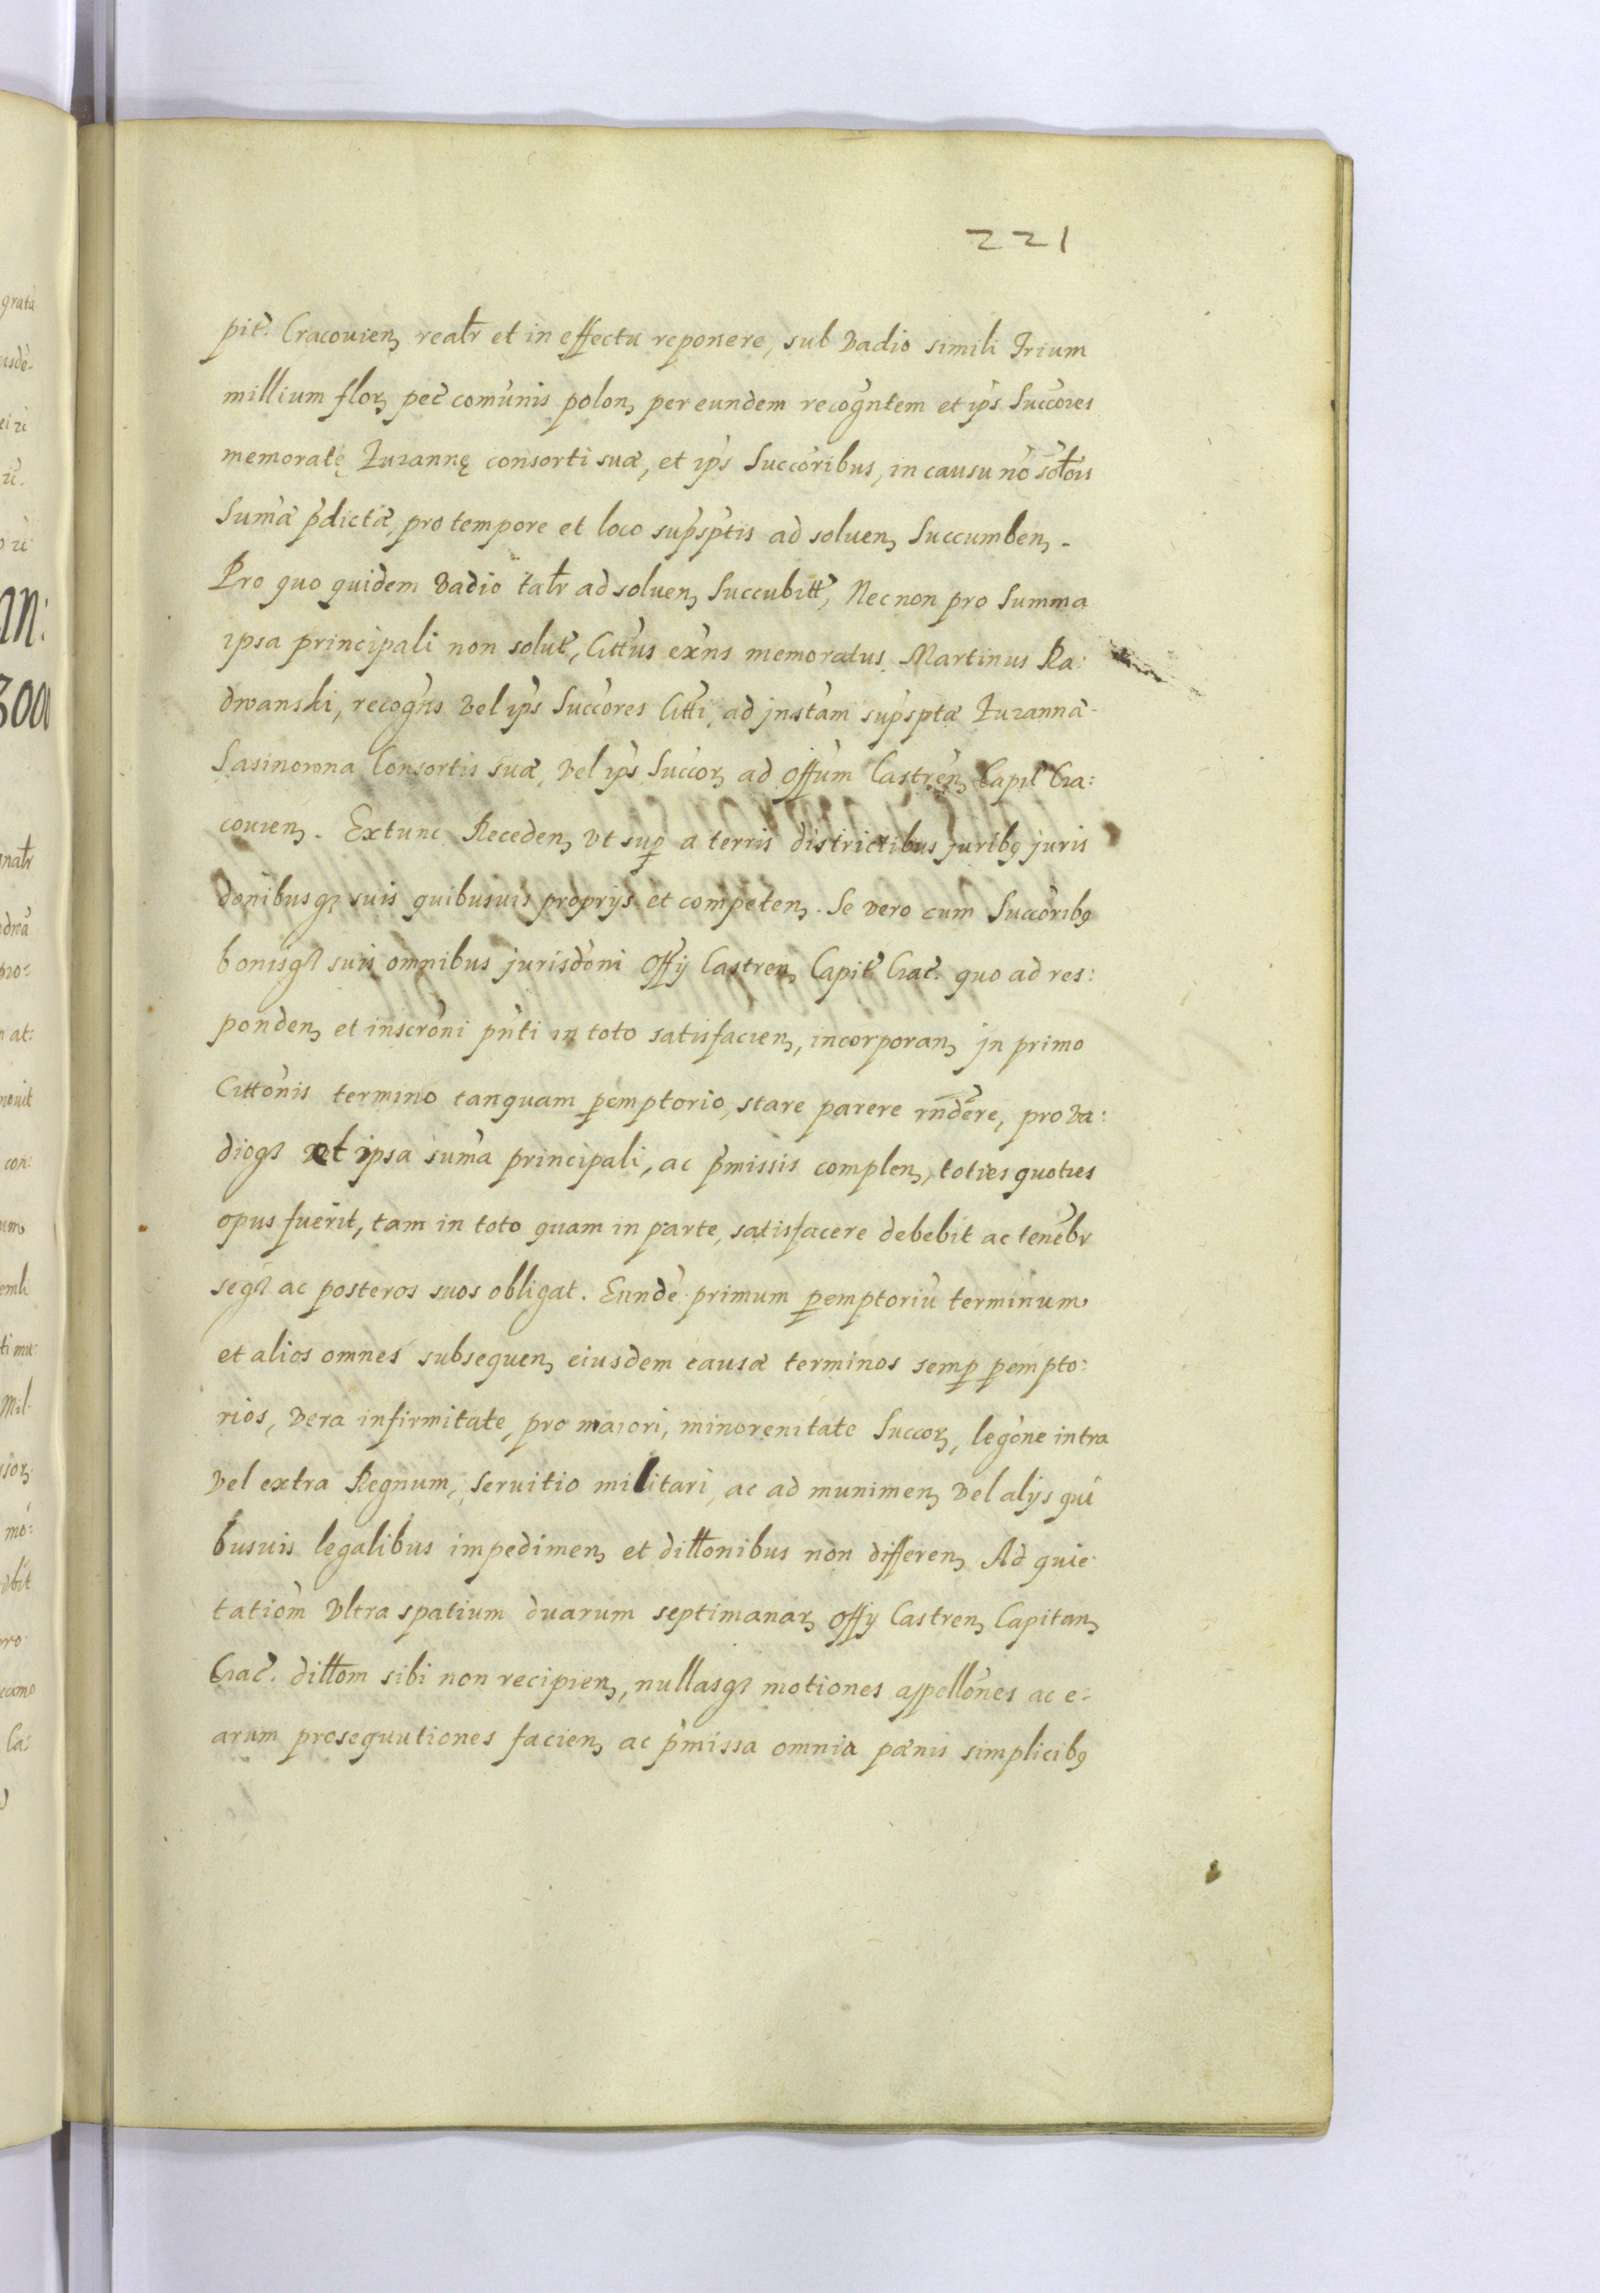 221
pit̃. Cracouien̨ realr̃ et in effectu reponere, sub vadio simili Trium
millium flor̨ pec̃ com̃unis polon̨ per eundem recogñtem et ip̃s Succ̃ores
memoratę Zuzannę consorti suæ, et ip̃s Succ̃oribus, in causu nõ sol̃ois
Sum̃æ p̃dictæ, pro tempore et loco sup̃sp̃tis ad soluen̨ Succumben̨.
Pro quo quidem vadio tal̃r ad soluen̨ Succubitt̃, Nec non pro Summa
ipsa principali non solut̃, Citt̃us ex̃ns memoratus Martinus Ra:
dwanski, recog̃ns vel ip̃s Succ̃ores Citt̃i, ad jnst̃am sup̃sptæ Zuzannæ
Sasinowna Consortis suæ, vel ip̃s Succor̨ ad Off̃um Castren̨ Capit̃ Cra:
couien̨. Extunc Receden̨ vt sup̱ a terris districtibus juribꝫ juris
dõnibusqꝫ suis quibusuis proprijs et competen̨. Se vero cum Succ̃oribꝫ
bonisqꝫ suis omnibus jurisdõni Offij Castren̨ Capit̃ Crac̃. quo ad res:
ponden̨ et inscrõni pñti in toto satisfacien̨, incorporan̨ jn primo
Cittõnis termino tanquam ꝑemptorio, stare parere rñdere, pro va:
dioqꝫ et ipsa sum̃a principali, ac p̃missis complen̨, toties quoties
opus fuerit, tam in toto quam in parte, satisfacere debebit ac teneb̃r
seqꝫ ac posteros suos obligat. Eundẽ primum ꝑemptoriũ terminum
et alios omnes subsequen̨ eiusdem causæ terminos semꝑ ꝑempto:
rios, vera infirmitate, pro maiori, minorenitate Succor̨, legõne intra
vel extra Regnum, Seruitio militari, ac ad munimen̨ vel alijs qui
busuis legalibus impedimen̨ et dilt̃onibus non differen̨ Ad quie:
tatiõm vltra spatium duarum septimanar̨ Offij Castren̨ Capitan̨
Crac̃. dilt̃om sibi non recipien̨, nullasqꝫ motiones appellõnes ac e:
arum prosequutiones facien̨ ac p̃missa omnia pænis simplicibꝫ